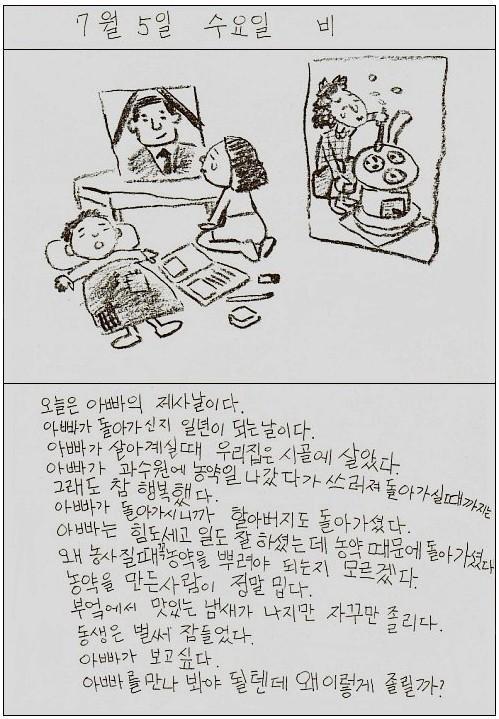 7월 5일 수요일 비
오늘은 아빠의 제사날이다.
아빠가 돌아가신지 일년이 되는날이다.
아빠가 살아계실때 우리집은 시골에 살았다.
아빠가 과수원에 농약일 나갔다가 쓰러져 돌아가실때까지는
그래도 참 행복했다.
아빠가 돌아가시니까 할아버지도 돌아가셨다.
아빠는 힘도세고 일도 잘 하셨는데 농약때문에 돌아가셨다
왜 농사질때꼭농약을 뿌려야 되는지 모르겠다.
농약을 만든사람이 정말 밉다.
부엌에서 맛있는 냄새가 나지만 자꾸만 졸리다.
동생은 벌써 잠들었다.
아빠가 보고싶다.
아빠를만나 봐야 될텐데 왜이렇게 졸릴까?